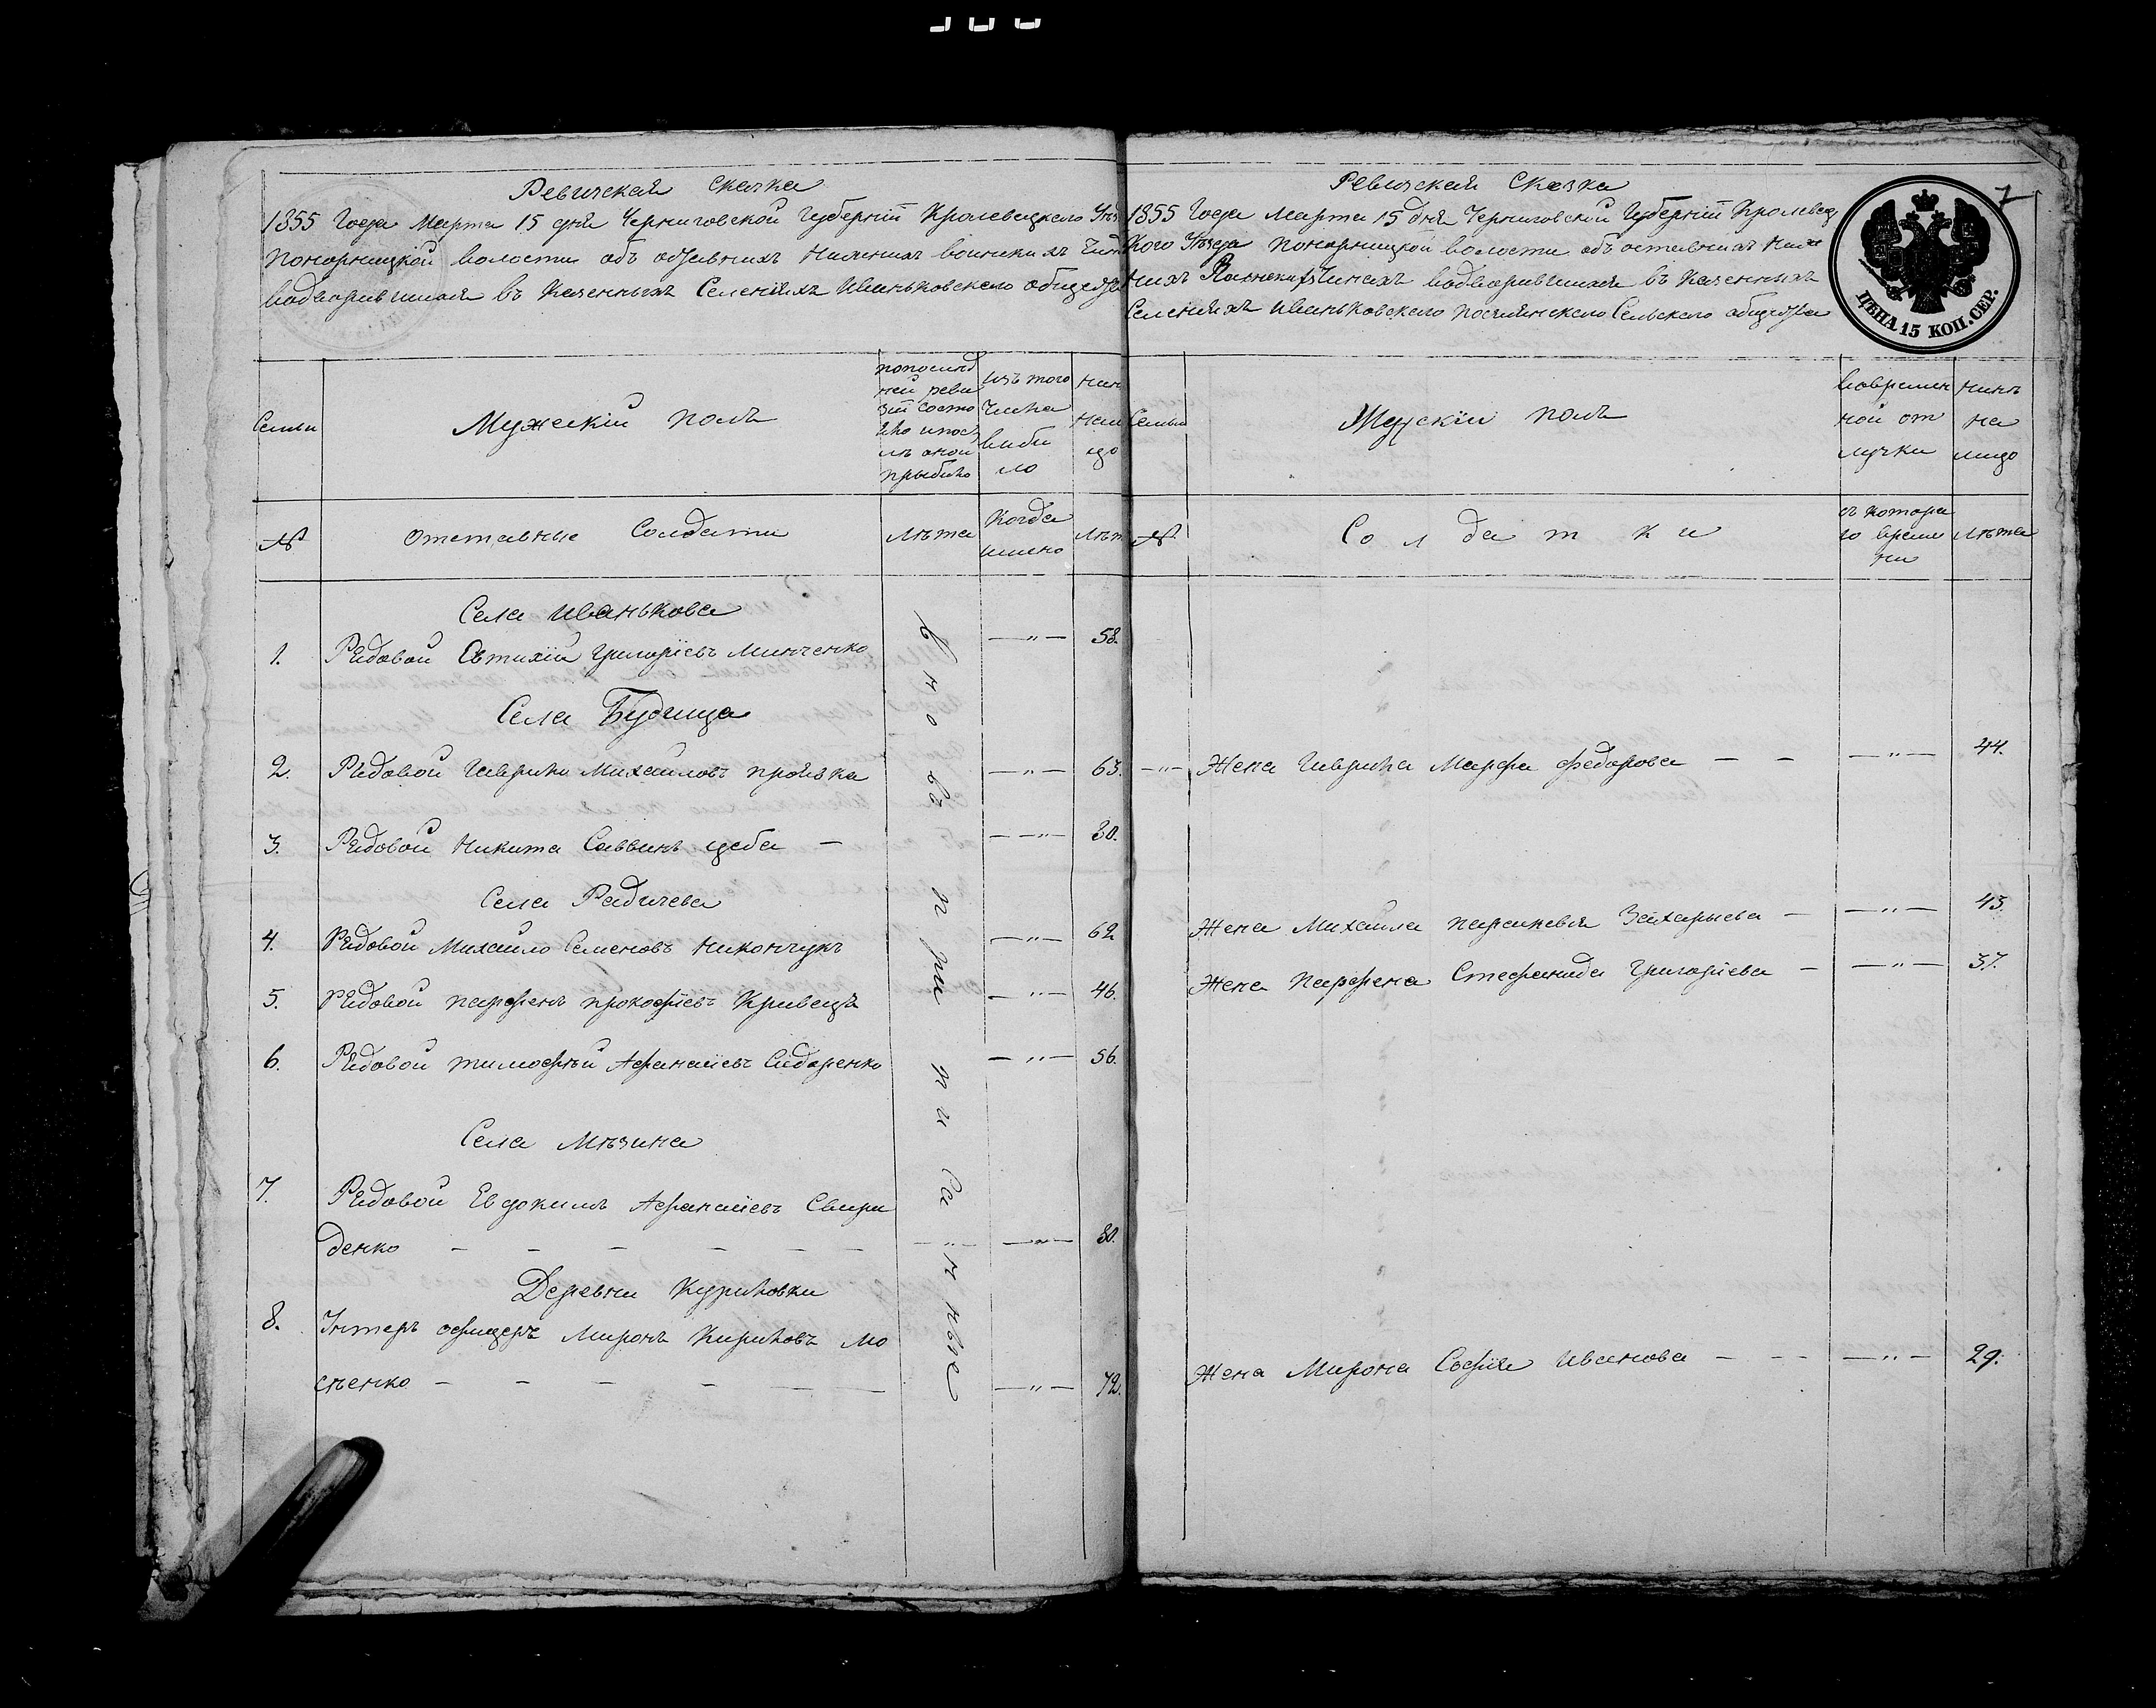 Ревизская сказка
1855 года Марта 15 дня Черниговской Губернiи Кролевецкого
Понорницкой волости об воинских
водворившихся въ Казенныхъ Селенiяхъ Иваньковского
Семьи
Мужескiй полъ
по послед
ней реви
зiи состо
яло и посл
ѣ оной
прыбыло
изъ того
числа
выбы
ло
№
отставные Солдаты
Лѣта
Когда
имено
Села Иванькова
1. Рядовой Евтихiй Григорiевъ Минченко —"— 58.
Села Будища
2. Рядовой Гаврило Михайловъ Проявка —"— 63.
3. Рядовой Никита Саввинъ Цеба — —"— 30.
Села Радичева
4. Рядовой Михайло Семеновъ Никончукъ —"— 62
5. Рядовой Парфенъ Прокофiевъ Кривецъ —"— 46.
6. Рядовой Тимофѣй Афанасiевъ Сидоренко —"— 56.
Села Мѣзина
7. Рядовой Евдокимъ Афанасiевъ Свири
денко — — — — — — —"— —"— 30.
Деревни Куриловки
8. Унтеръ офицеръ Миронъ Кириловъ Мо
сѣенко — — — — — — —"— 72.
вновь
приписанные
7
Ревизская Сказка
1855 года Марта 15 дня Черниговской Губернiи Кролевец
кого Уѣзда Понорницкой волости объ оставныхъ Ниж
нихъ Чинахъ водворившихся въ Казенныхъ
Селенiяхъ Иваньковского Сельского общества
ЦѢНА 15 КОП. СЕР.
Семьи
полъ
вовремен
ной от
лучки
нинѣ
на
лицо
№
Солдатки
съ котора
го време
ни
Лѣта
—"— Жена Гаврила Марфа Федорова — — —"— 44.
Жена Михайла Параскевiя Захарьева — —"— 43.
Жена Парфена Стефанида Григорiева — —"— 37.
Жена Мирона Софiя Иванова — — — —"— 29.